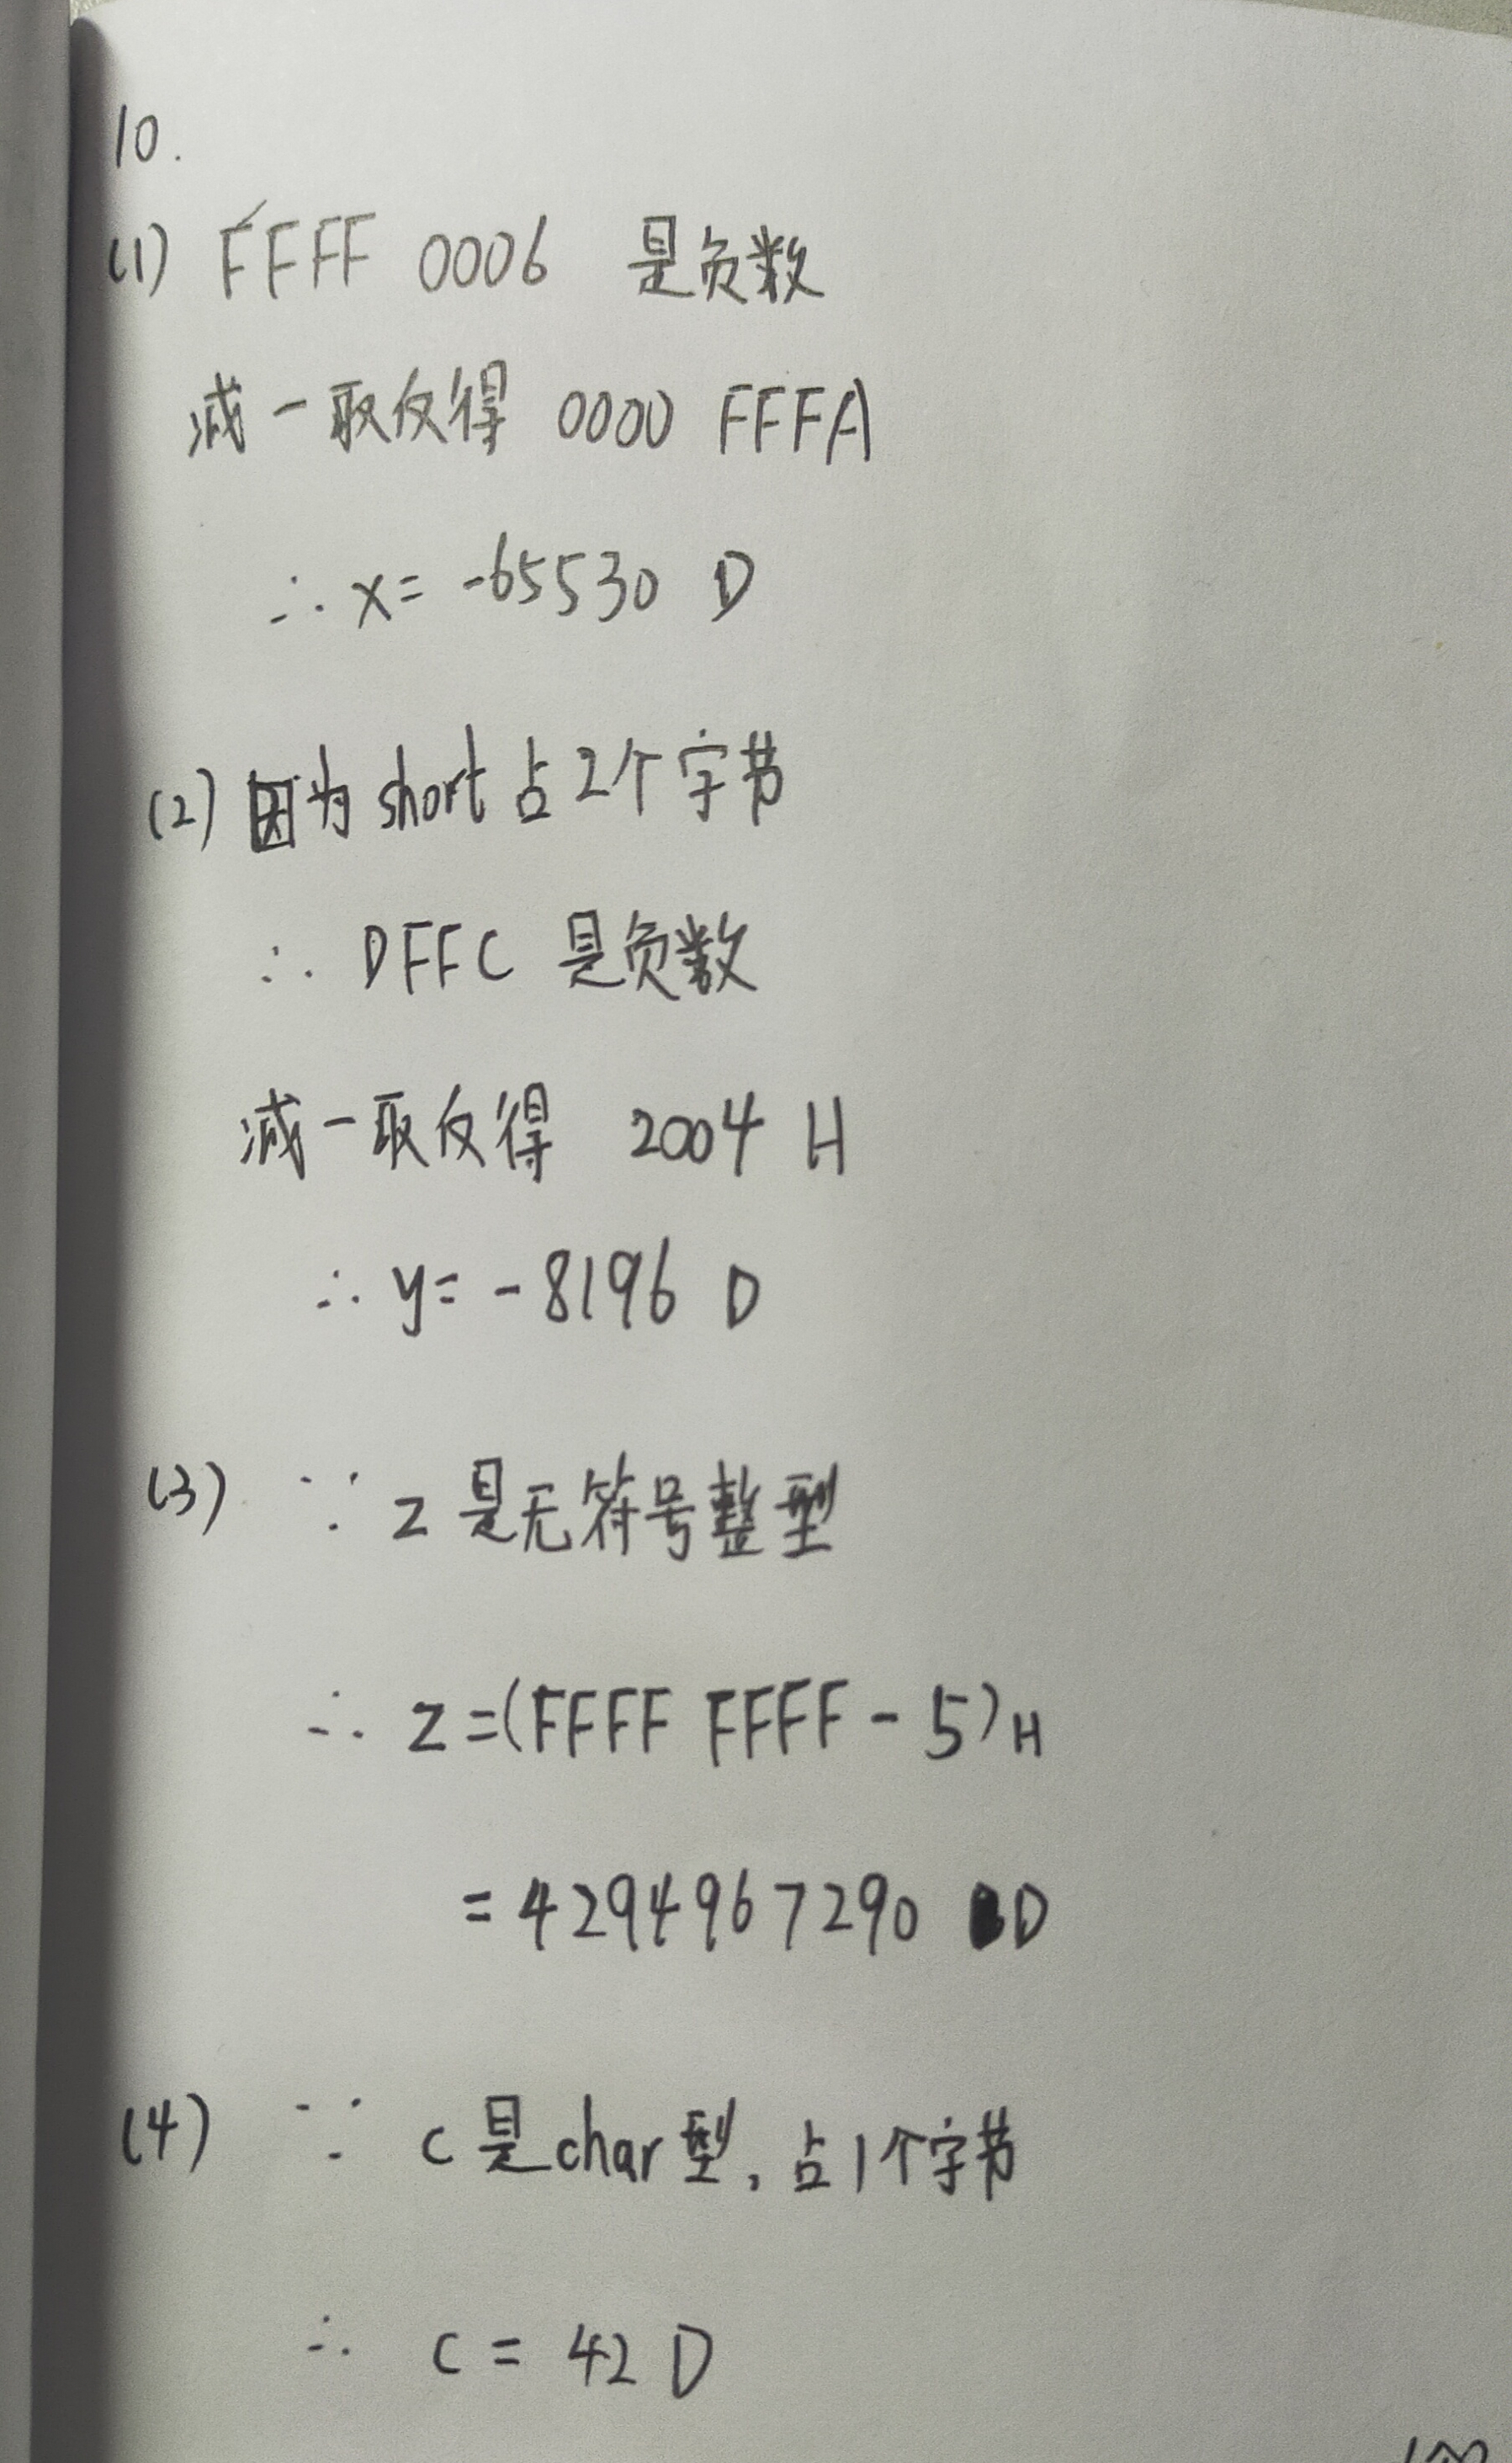 10.
(1) FFFF 0006 是负数
减一取反得 0000 FFFA
∴ x = -65530 D
(2) 因为short占2个字节
∴ DFFC 是负数
减一取反得 2004 H
∴ y = -8196 D
(3) ∵ z是无符号整型
∴ z = (FFFF FFFF - 5)H
= 4294967290 D
(4) ∵ c是char型, 占1个字节
∴ c = 42 D